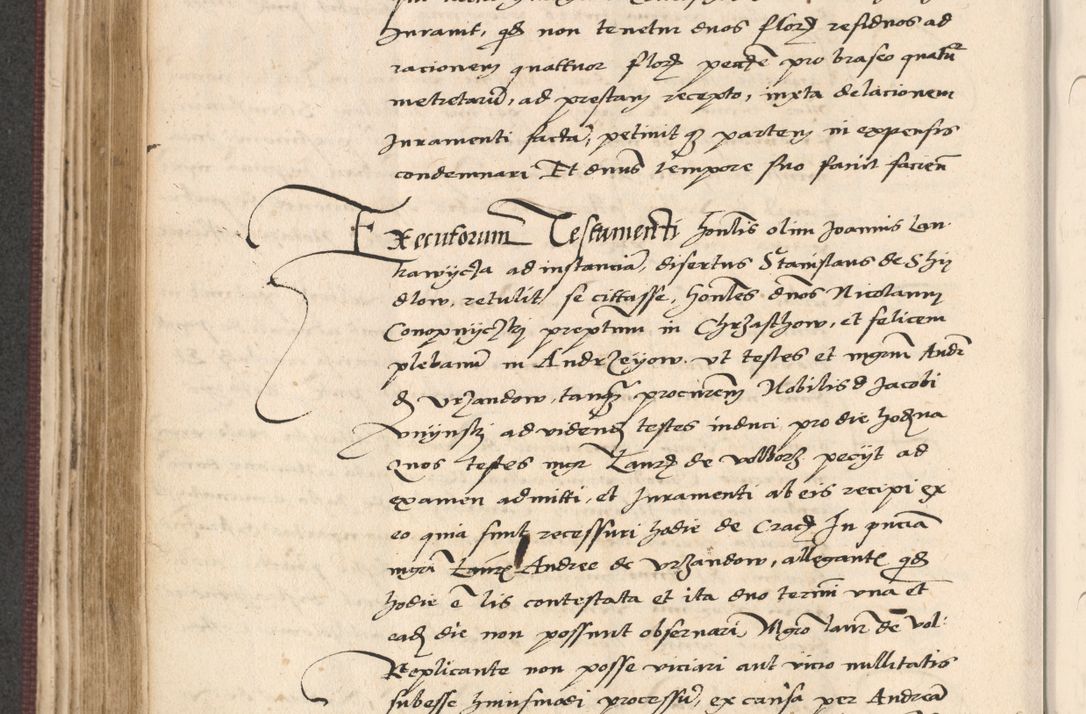 Juravit, qd non tenetur duos flor residuos ad
racionem quattuor flor pecude pro braseo quatuor
metretaru, ad prestam recepto, iuxta delacionem
Juramenti facta, petiuit q partem in expensis
condemnari Et domus tempore suo faciit facien
Executorum Testamenti honlis olim Joannis Lan
kawijcza ad instancia, disertus Stanislaus de Shij
dlow, retulit se cittasse, honles dnos Nicolaum
Conopnijczkj preptum in Chrzasthow, et felicem
plebanu in Andrzeyow, ut testes et mgrm Andr
d Vrzandow, tanq procurem Nobilis d Jacobi
ad videnđ testes induci pro die hodna
Quos testes mgr Laur de Wolborz pecijt ad
examen admitti, et Juramenti ab eis recipi ex
eo quia sunt recessuri hodie de Crac In pncia
mgri Andree de Vrzandow, allegante qd
hodie e lis contestata et ita duo termi una et
ead die non possunt obseruari, Mgro laur de Vol:
Replicante non posse viciari aut vicio nullitatis
subesse huiusmodi processu, ex causa per Andrea